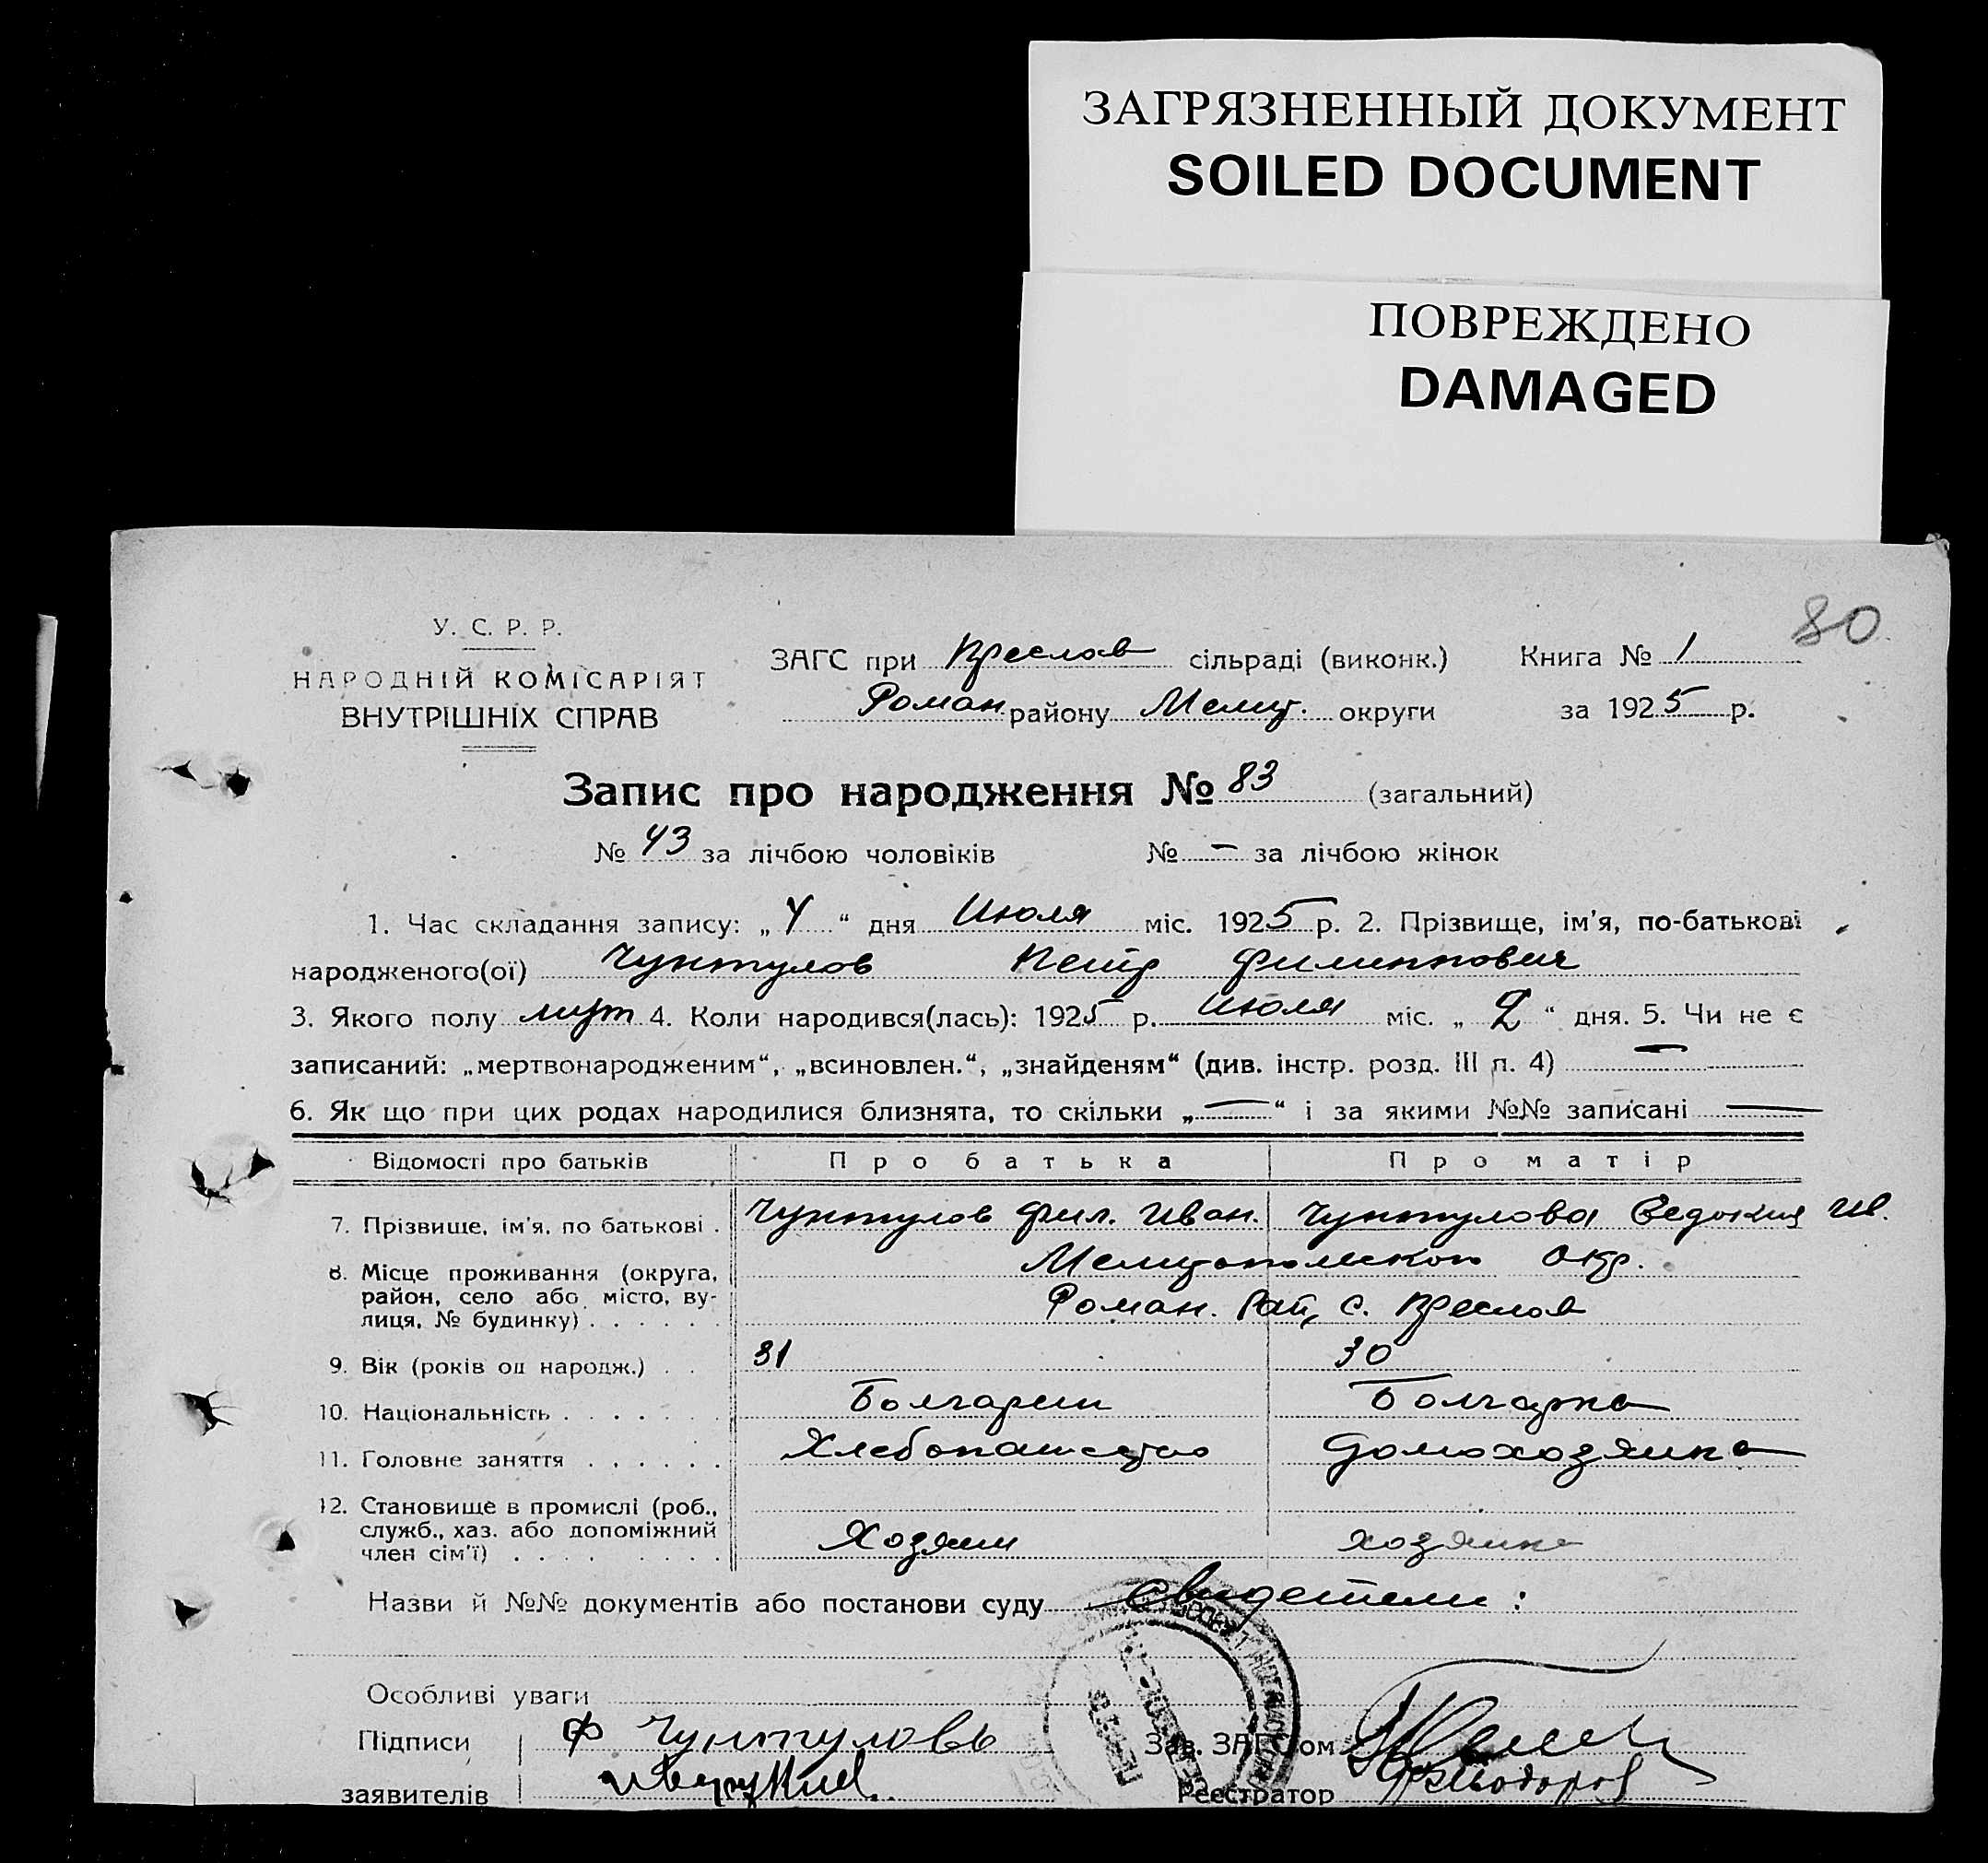 ЗАГРЯЗНЕННЫЙ ДОКУМЕНТ
SOILED DOCUMENT
ПОВРЕЖДЕНО
DAMAGED
80
У. С. Р. Р.
НАРОДНІЙ КОМІСАРІЯТ
ВНУТРІШНІХ СПРАВ
ЗАГС при Преслав сільраді (виконк.) Книга № 1
Роман. району Мелит. округи за 1925 р.
Запис про народження № 83 (загальний)
№ 43 за лічбою чоловіків № — за лічбою жінок
1. Час складання запису: „4“ дня Июля міс. 1925 р. 2. Прізвище, ім'я, по-батькові
народженого(ої) Чунтулов Петр Филиппович
3. Якого полу муж 4. Коли народився(лась): 1925 р. Июля міс. „2“ дня. 5. Чи не є
записаний: „мертвонародженим“, „всиновлен.“, „знайденям“ (див. інстр. розд. III п. 4) —
6. Як що при цих родах народилися близнята, то скільки „—“ і за якими №№ записані —
Відомості про батьків Про батька Про матір
7. Прізвище, ім'я, по батькові . Чунтулов Фил. Иван. Чунтулова Евдокия Ив.
8. Місце проживання (округа, район, село або місто, вулиця, № будинку) . . . . . . Мелитопольского Окр.
Роман. Рай, с. Преслав
9. Вік (років од народж.) . . 31 30
10. Національність . . . . . . . Болгарин Болгарка
11. Головне заняття . . . . . . Хлебопашество Домохозяйка
12. Становище в промислі (роб., служб., хаз. або допоміжний член сім'ї) . . . . . . . . Хозяин хозяйка
Назви й №№ документів або постанови суду Свидетели:
Особливі уваги
Підписи Ф Чунтуловъ Зав. ЗАГС'ом
заявителів Реєстратор